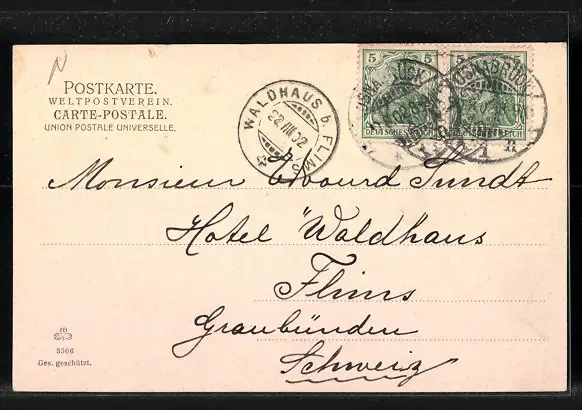 POSTKARTE.
WELTPOSTVEREIN.
CARTE-POSTALE.
UNION POSTALE UNIVERSELLE.
WALDHAUS b. FLIMS
22.III.02
5 5
5 5
DEUTSCHES REICH
REICH
OSNABRÜCK
OSNABRÜCK
Monsieur Edouard Sundt
Hotel "Waldhaus
Flims
Graubünden
Schweiz
3506
Ges. geschützt.